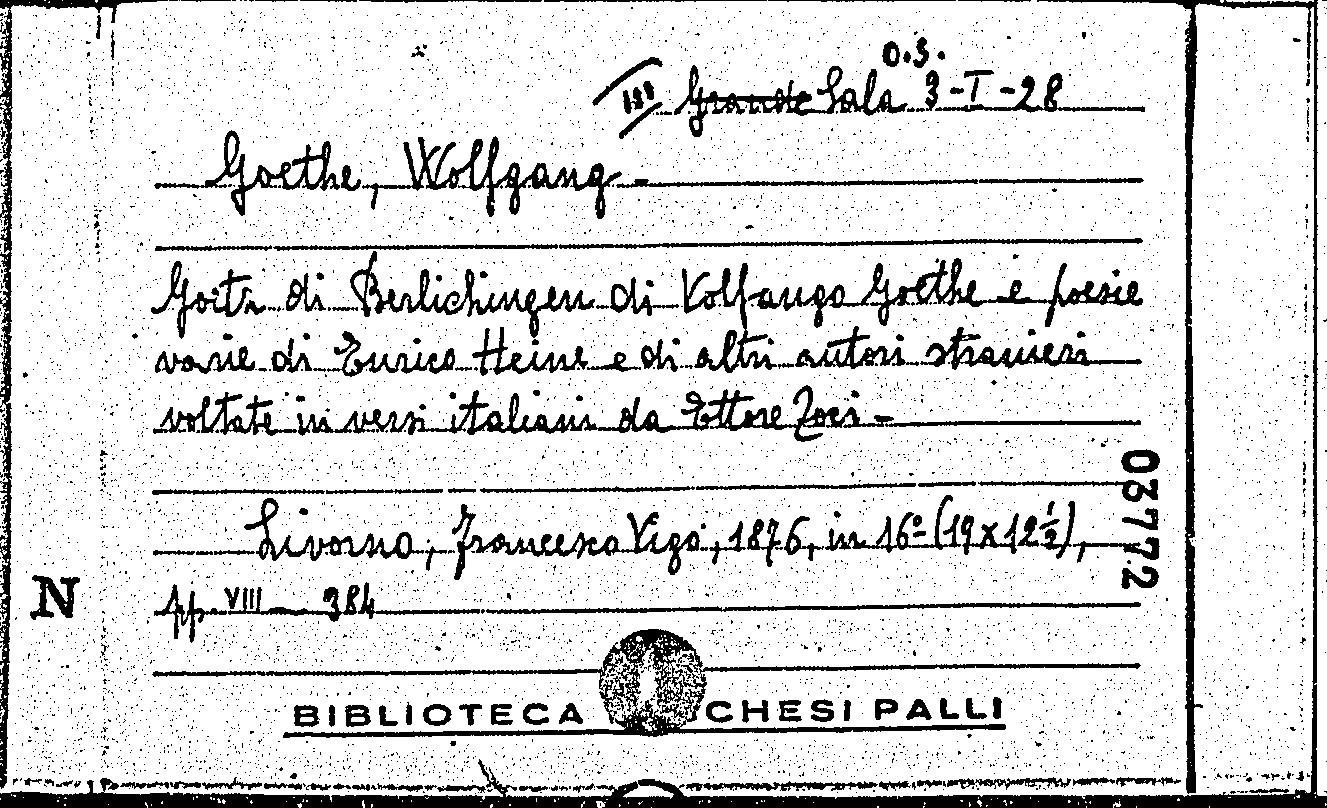 O.S.
Grande Sala 3-I-28
Goethe, Wolfgang -
Goitz di Berlichingen di Volfango Goethe e poesie
varie di Enrico Heine e di altri autori stranieri
voltate in versi italiani da Ettore Toci -
Livorno, Francesco Vigo, 1876, in 16º (19x12½),
pp. VIII - 384
03772
N
BIBLIOTECA CHESI PALLI